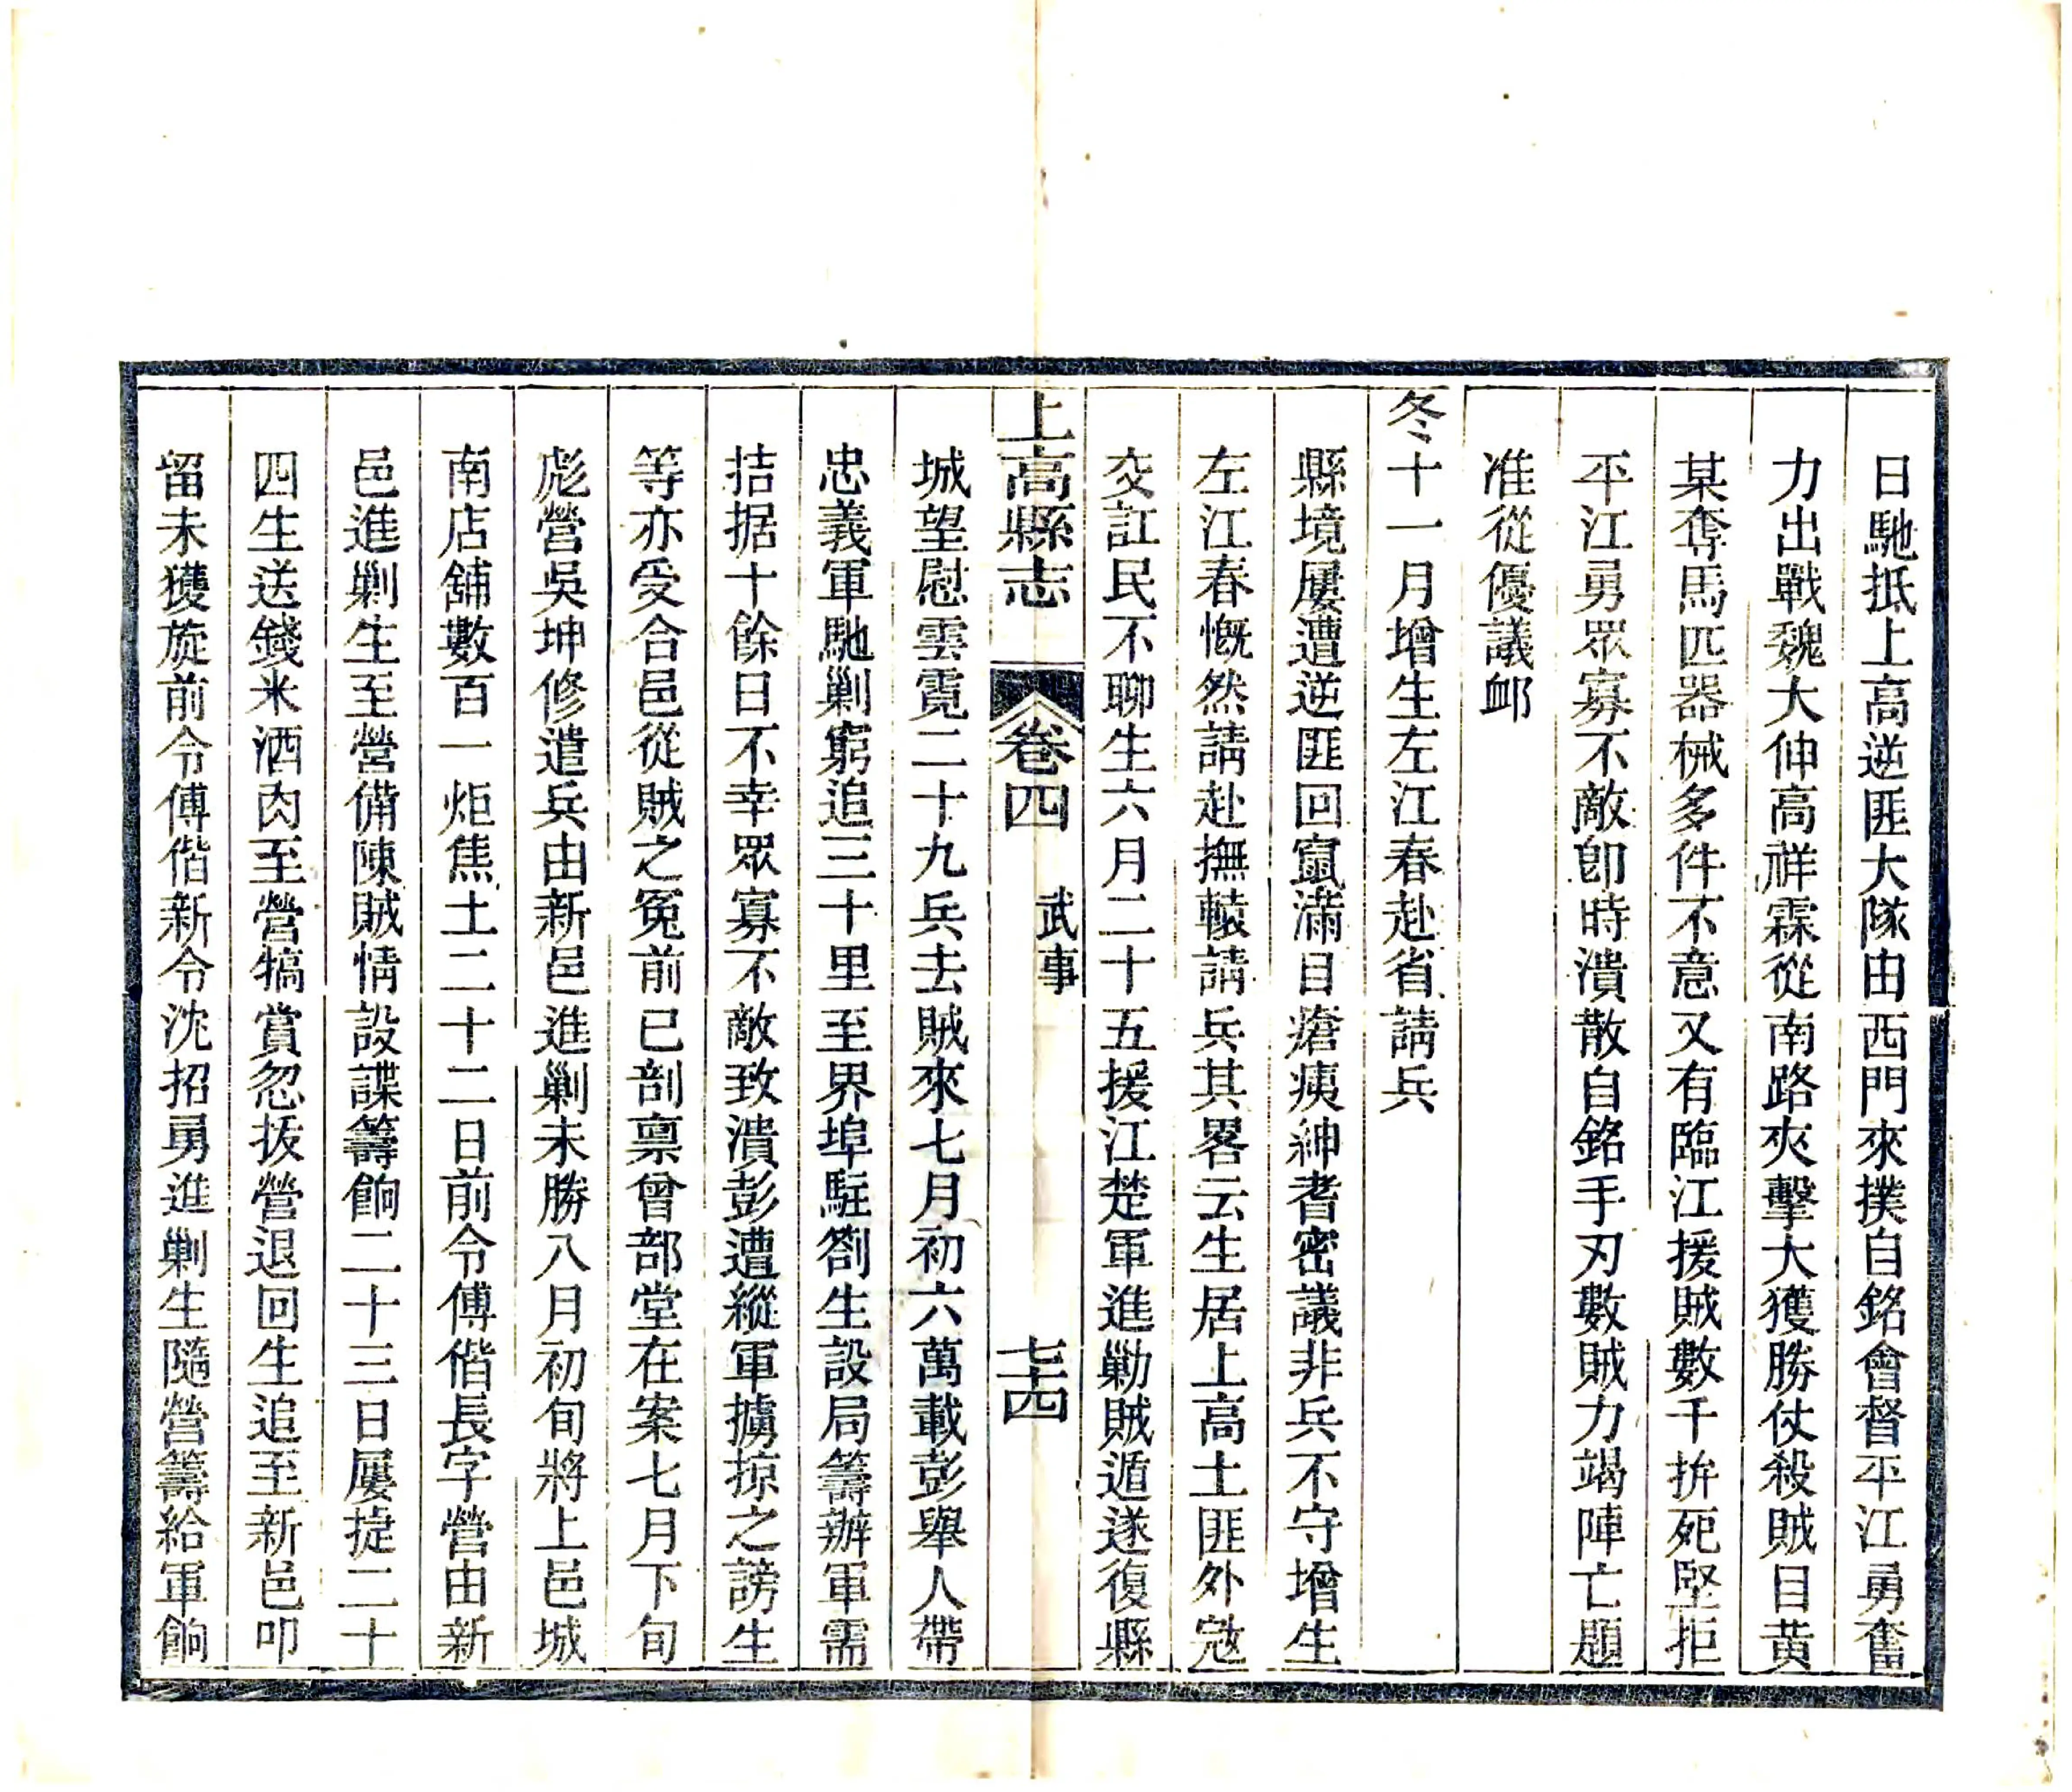 日馳抵上高逆匪大隊由西門來撲自銘會督平江勇奮
力出戰魏大伸高祥霖從南路夾擊大獲勝仗殺賊目黃
某奪馬匹器械多件不意又有臨江援賊數千拚死堅拒
平江勇眾寡不敵卽時潰散自銘手刃數賊力竭陣亡題
准從優議衈
冬十一月增生左江春赴省請兵
縣境屢遭逆匪回竄滿目瘡痍紳耆密議非兵不守增生
左江春慨然請赴撫轅請兵其畧云生居上高土匪外寇
交訌民不聊生六月二十五援江楚軍進勦賊遁遂復縣
上高縣志 卷四 武事 七十四
城望慰雲霓二十九兵去賊來七月初六萬載彭舉人帶
忠義軍馳剿窮追三十里至界埠駐劄生設局籌辦軍需
拮据十餘日不幸眾寡不敵致潰彭遭縱軍擄掠之謗生
等亦受合邑從賊之冤前已剖禀曾部堂在案七月下旬
彪營吳坤修遣兵由新邑進剿未勝八月初旬將上邑城
南店舖數百一炬焦土二十二日前令傅偕長字營由新
邑進剿生至營備陳賊情設諜籌餉二十三日屢捷二十
四生送錢米酒肉至營犒賞忽拔營退回生追至新邑叩
留未獲旋前令傅偕新令沈招勇進剿生隨營籌給軍餉